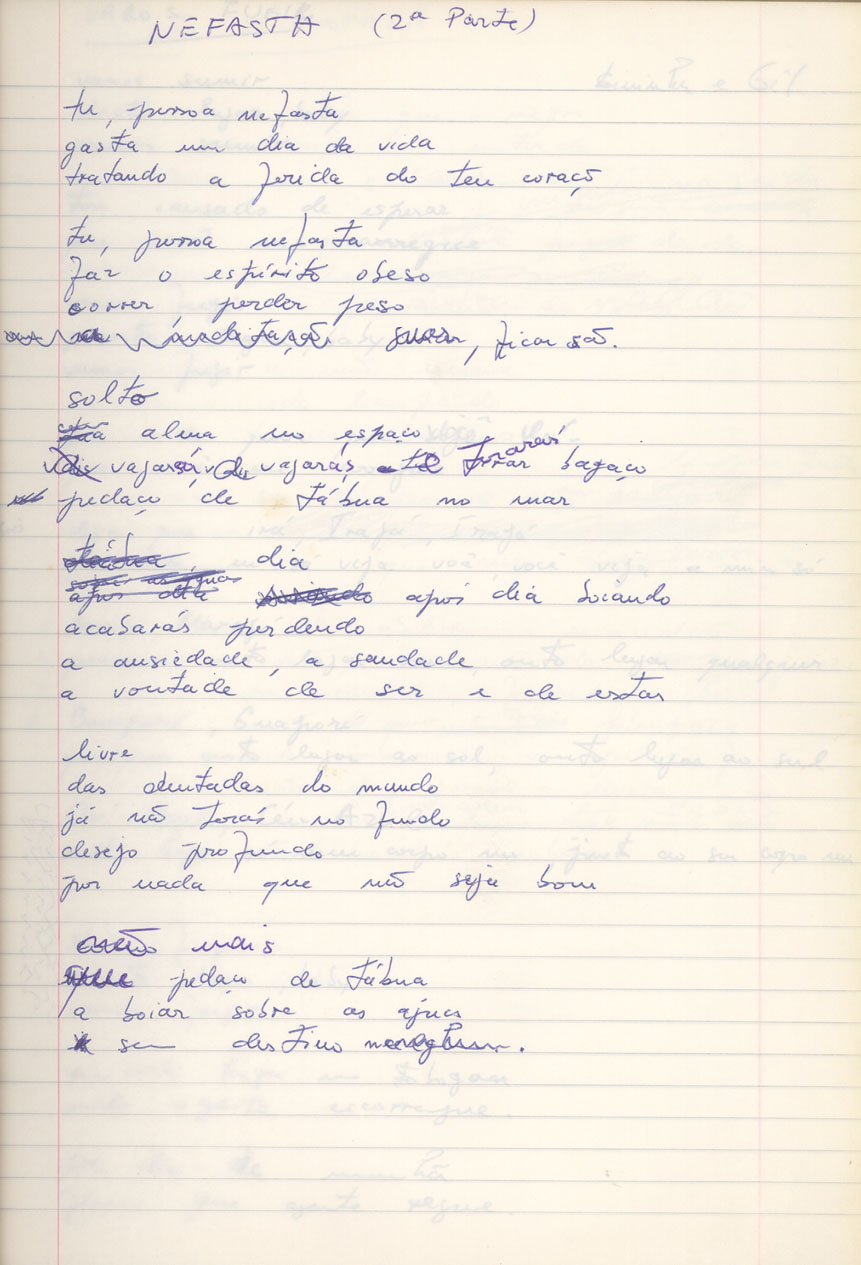 NEFASTA (2ª Parte)
tu, pessoa nefasta
gasta um dia da vida
tratando a ferida do teu coraçõ
tu, pessoa nefasta
faz o espírito obeso
correr, perder peso
suar, ficar sã.
solto
alma no espaço
vagarás, vagarás, te tornarás bagaço
pedaço de tábua no mar
dia
após dia boiando
acabarás perdendo
a ansiedade, a saudade
a vontade de ser e de estar
livre
das dentadas do mundo
já não terás no fundo
desejo profundo
por nada que não seja bom
não mais
que pedaço de tábua
a boiar sobre as águas
sem destino nenhum.